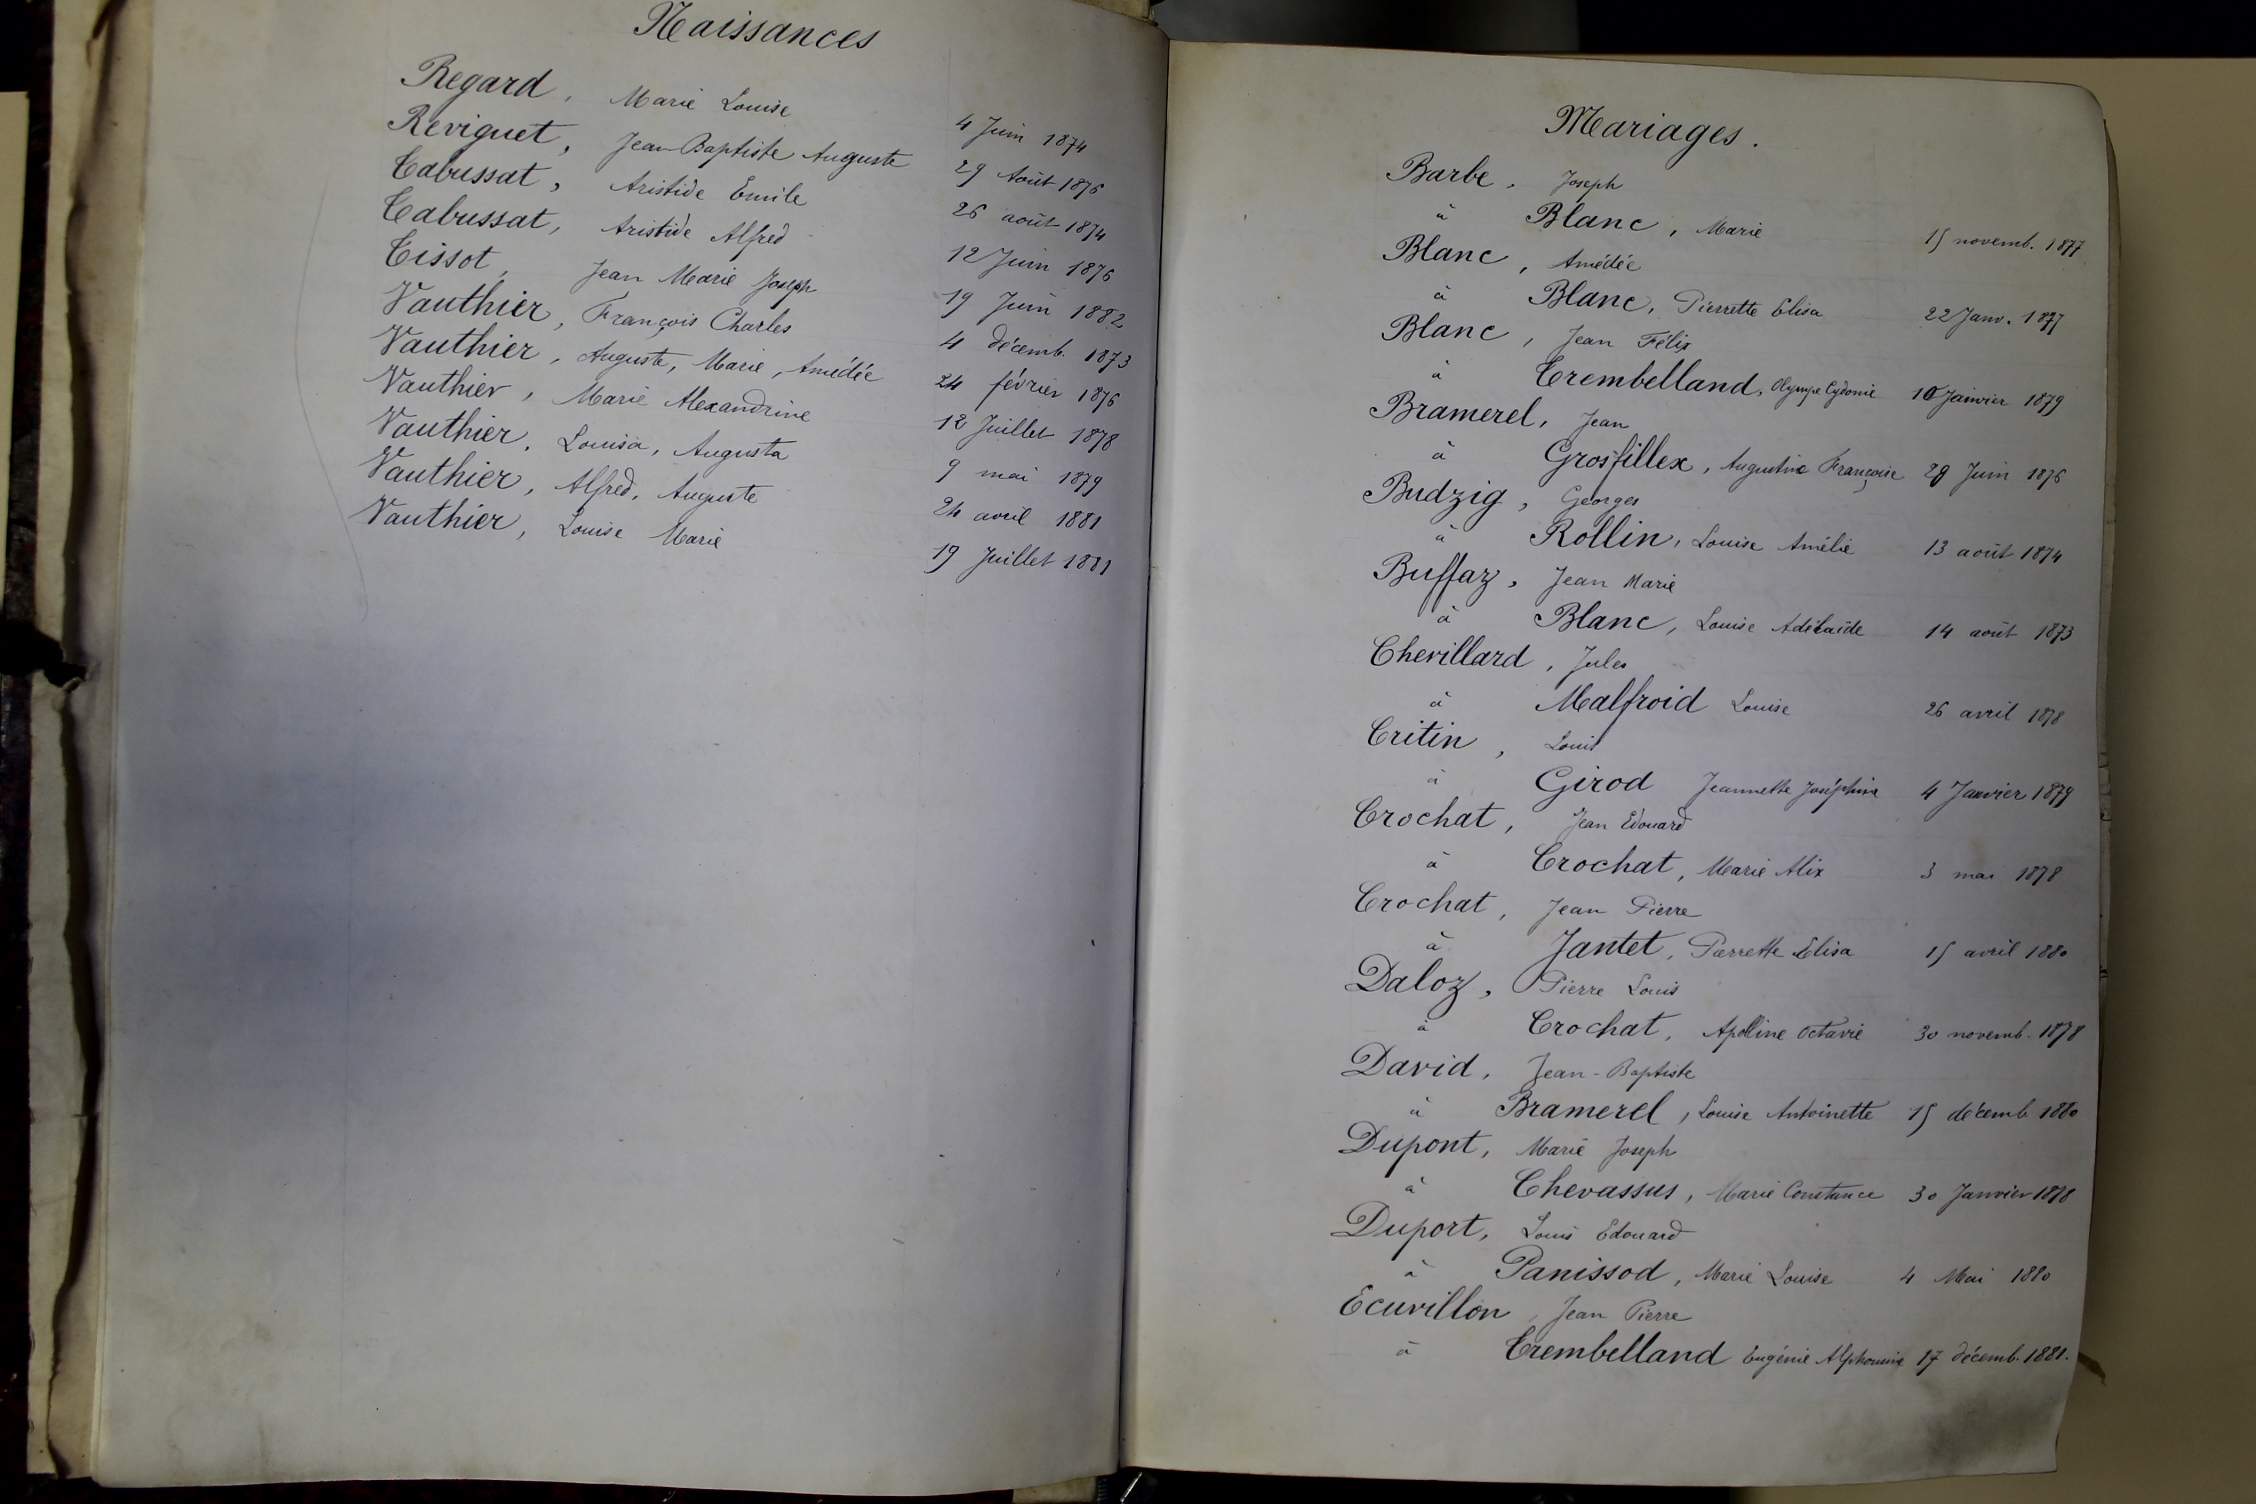 Naissances
Regard, Marie Louise 4 Juin 1874
Reviguet, Jean-Baptiste Auguste 29 Août 1876
Tabussat, Aristide Emile 26 août 1874
Tabussat, Aristide Alfred 12 Juin 1876
Tissot, Jean Marie Joseph 19 Juin 1882
Vauthier, François Charles 4 décemb. 1873
Vauthier, Auguste, Marie, Amédée 24 février 1876
Vauthier, Marie Alexandrine 12 Juillet 1878
Vauthier, Louisa, Augusta 9 mai 1879
Vauthier, Alfred, Auguste 24 avril 1881
Vauthier, Louise Marie 19 Juillet 1881
Mariages.
Barbe, Joseph
à Blanc, Marie 15 novemb. 1877
Blanc, Amédée
à Blanc, Pierrette Elisa 22 Janv. 1877
Blanc, Jean Félix
à Trembelland, Olympe Cydonie 10 Janvier 1879
Bramerel, Jean
à Grosfillex, Augustine Françoise 29 Juin 1876
Budzig, Georges
à Rollin, Louise Amélie 13 août 1874
Buffaz, Jean Marie
à Blanc, Louise Adélaïde 14 août 1873
Chevillard, Jules
à Malfroid Louise 26 avril 1878
Critin, Louis
à Girod Jeannette Joséphine 4 Janvier 1879
Crochat, Jean Edouard
à Crochat, Marie Alix 3 mai 1878
Crochat, Jean Pierre
à Jantet, Pierrette Elisa 15 avril 1880
Daloz, Pierre Louis
à Crochat, Apolline Octavie 30 novemb. 1878
David, Jean-Baptiste
à Bramerel, Louise Antoinette 15 décemb 1880
Dupont, Marie Joseph
à Chevassus, Marie Constance 30 Janvier 1878
Duport, Louis Edouard
à Panissod, Marie Louise 4 Mai 1880
Ecuvillon, Jean Pierre
à Trembelland Eugénie Alphonsine 17 décemb. 1881.